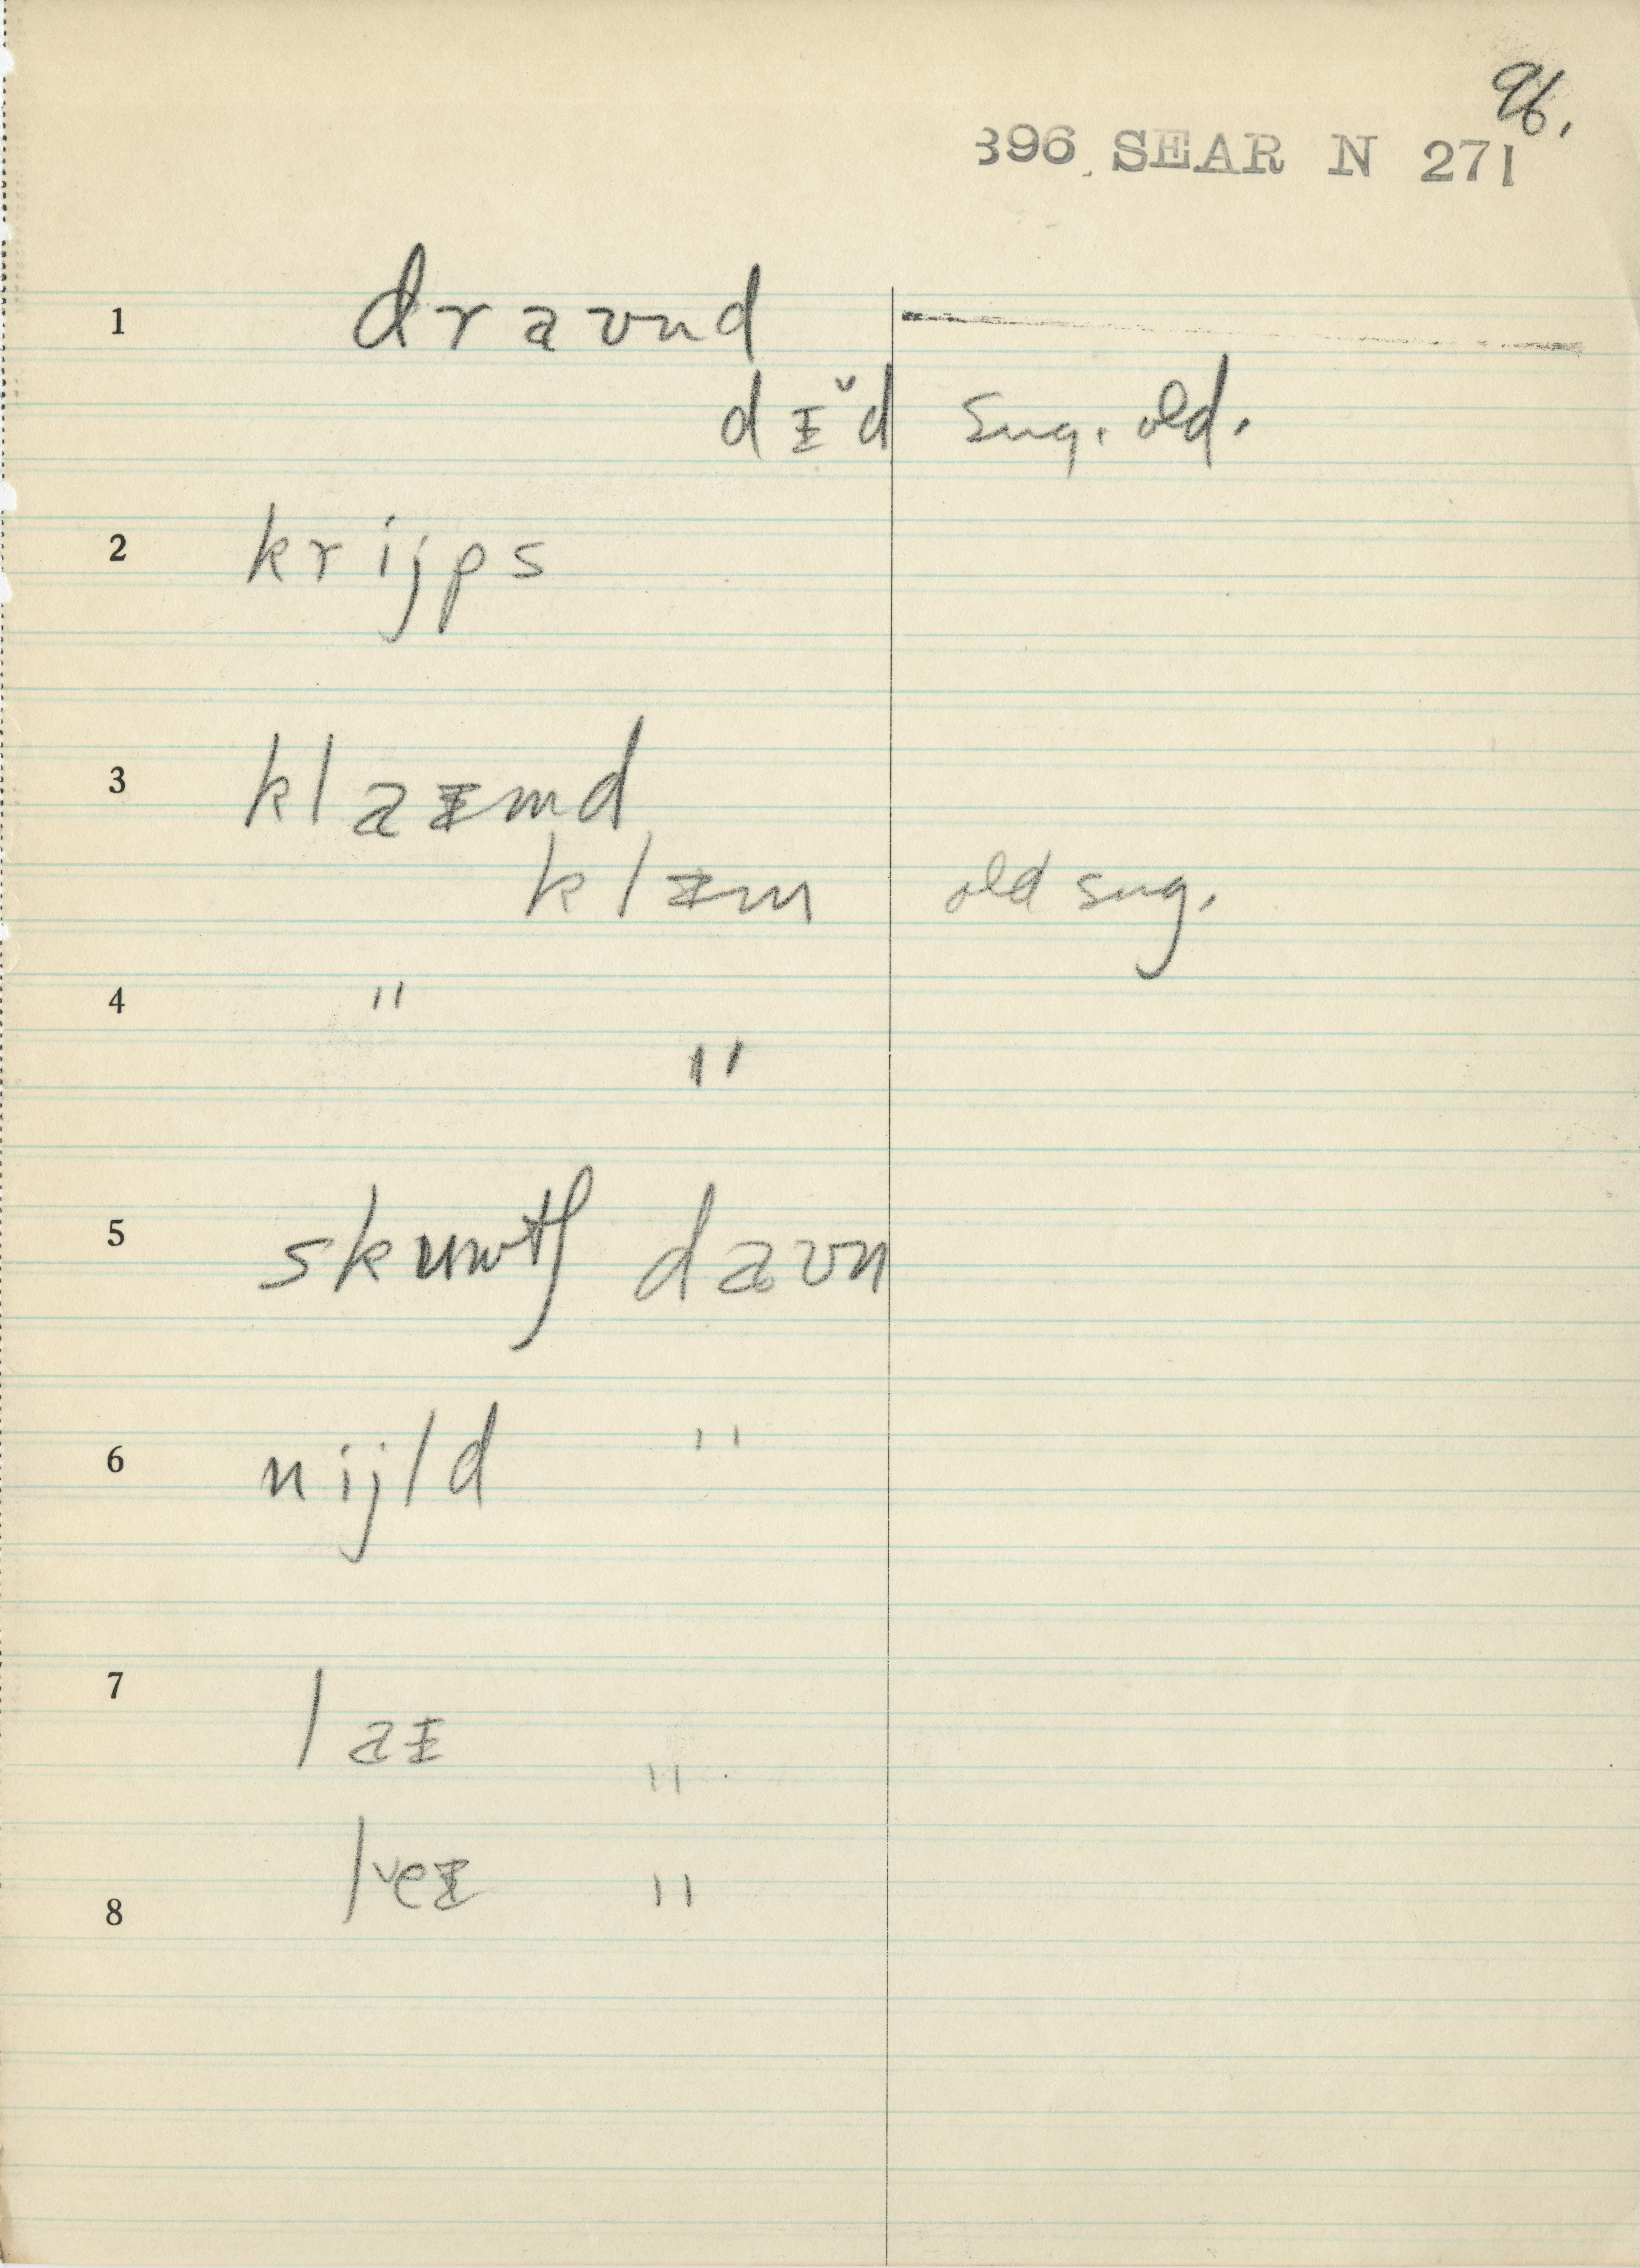 96.
396 SEAR N 271
1 dravnd
dɪ̆d sug. old.
2 krijps
3 klaɪmd
klɪm old sug.
4 "
"
5 skuwtʃ davn
6 nijld "
7 laɪ "
lʌɪ "
8